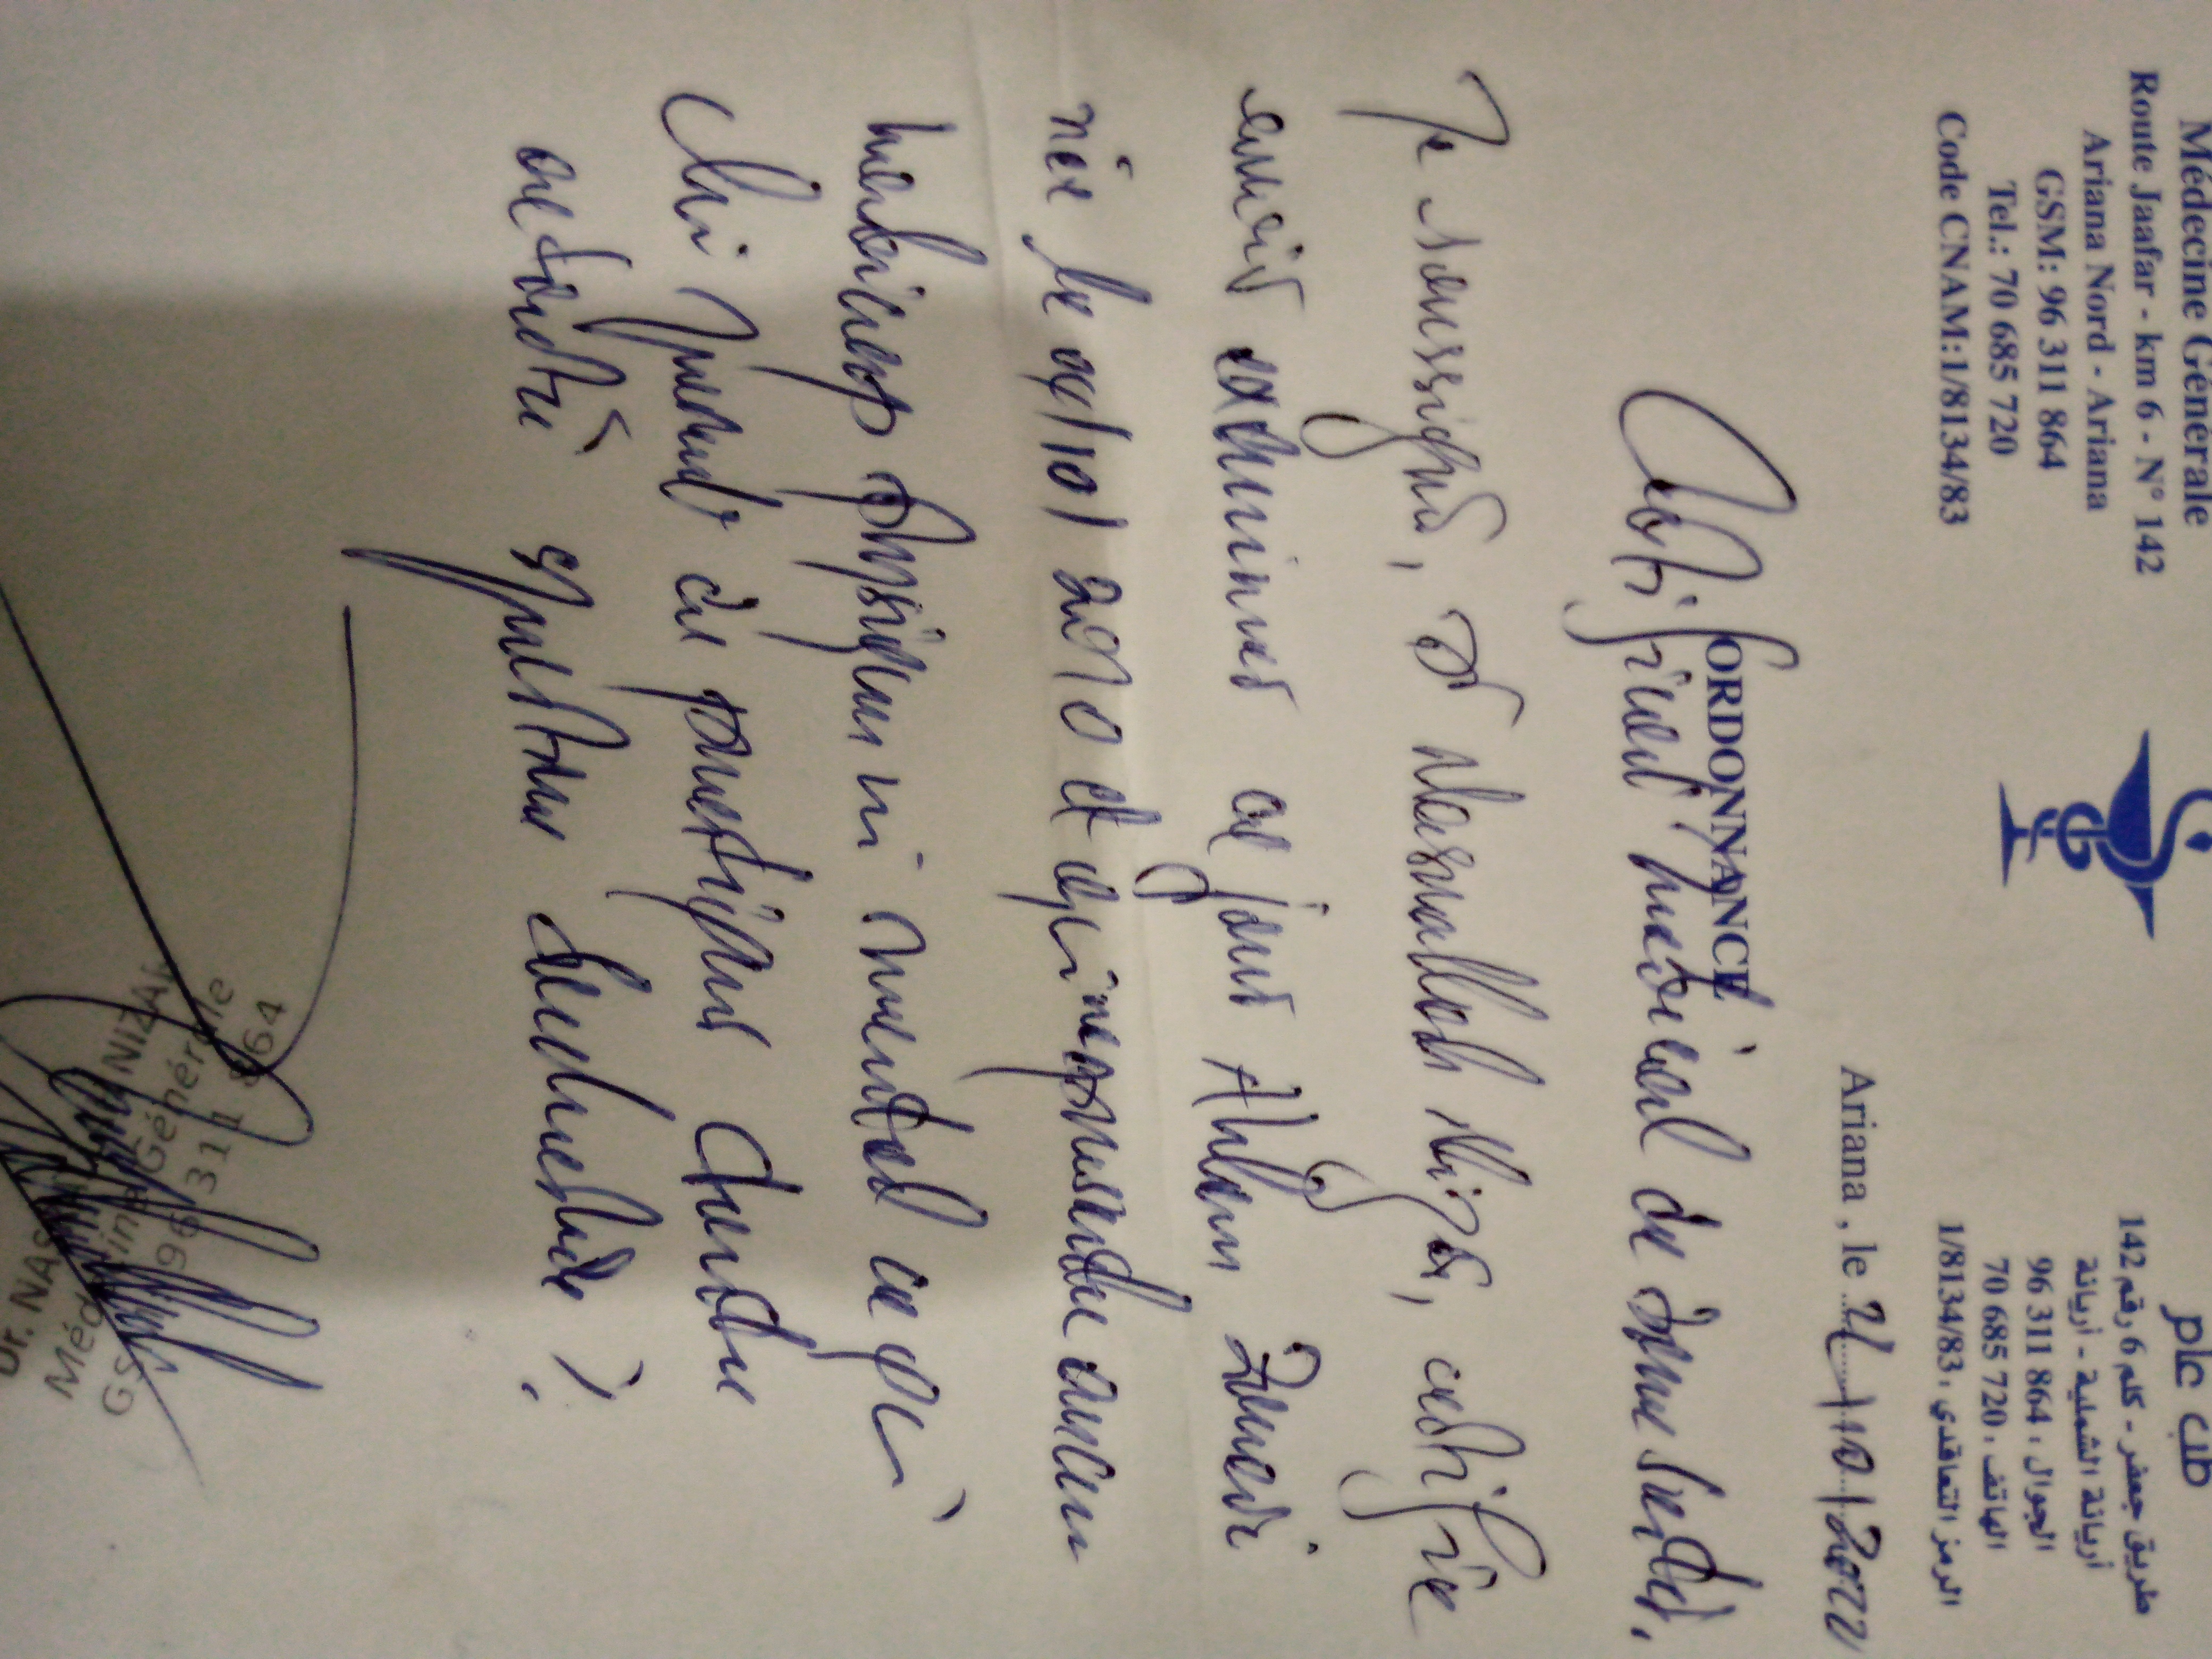 Médecine Générale
Route Jaafar - km 6 - N° 142
Ariana Nord - Ariana
GSM: 96 311 864
Tel.: 70 685 720
Code CNAM:1/8134/83
طب عام
طريق جعفر - كلم 6 رقم 142
أريانة الشمالية - أريانة
الجوال : 96 311 864
الهاتف : 70 685 720
الرمز التعاقدي : 1/8134/83
Ariana , le 21/10/2022
ORDONNANCE
Certificat médical de bonne santé.
Je soussigné, Dr Nasrallah Nizar, certifie
avoir examiner ce jour Ahlem
née le 09/10/2010 et qui ne présente aucun
handicap physique ni mental ce qui
lui permet de pratiquer toute
activité sportive demandée.
Dr. NAS NIZAR
Médecine Générale
GSM 96 311 864